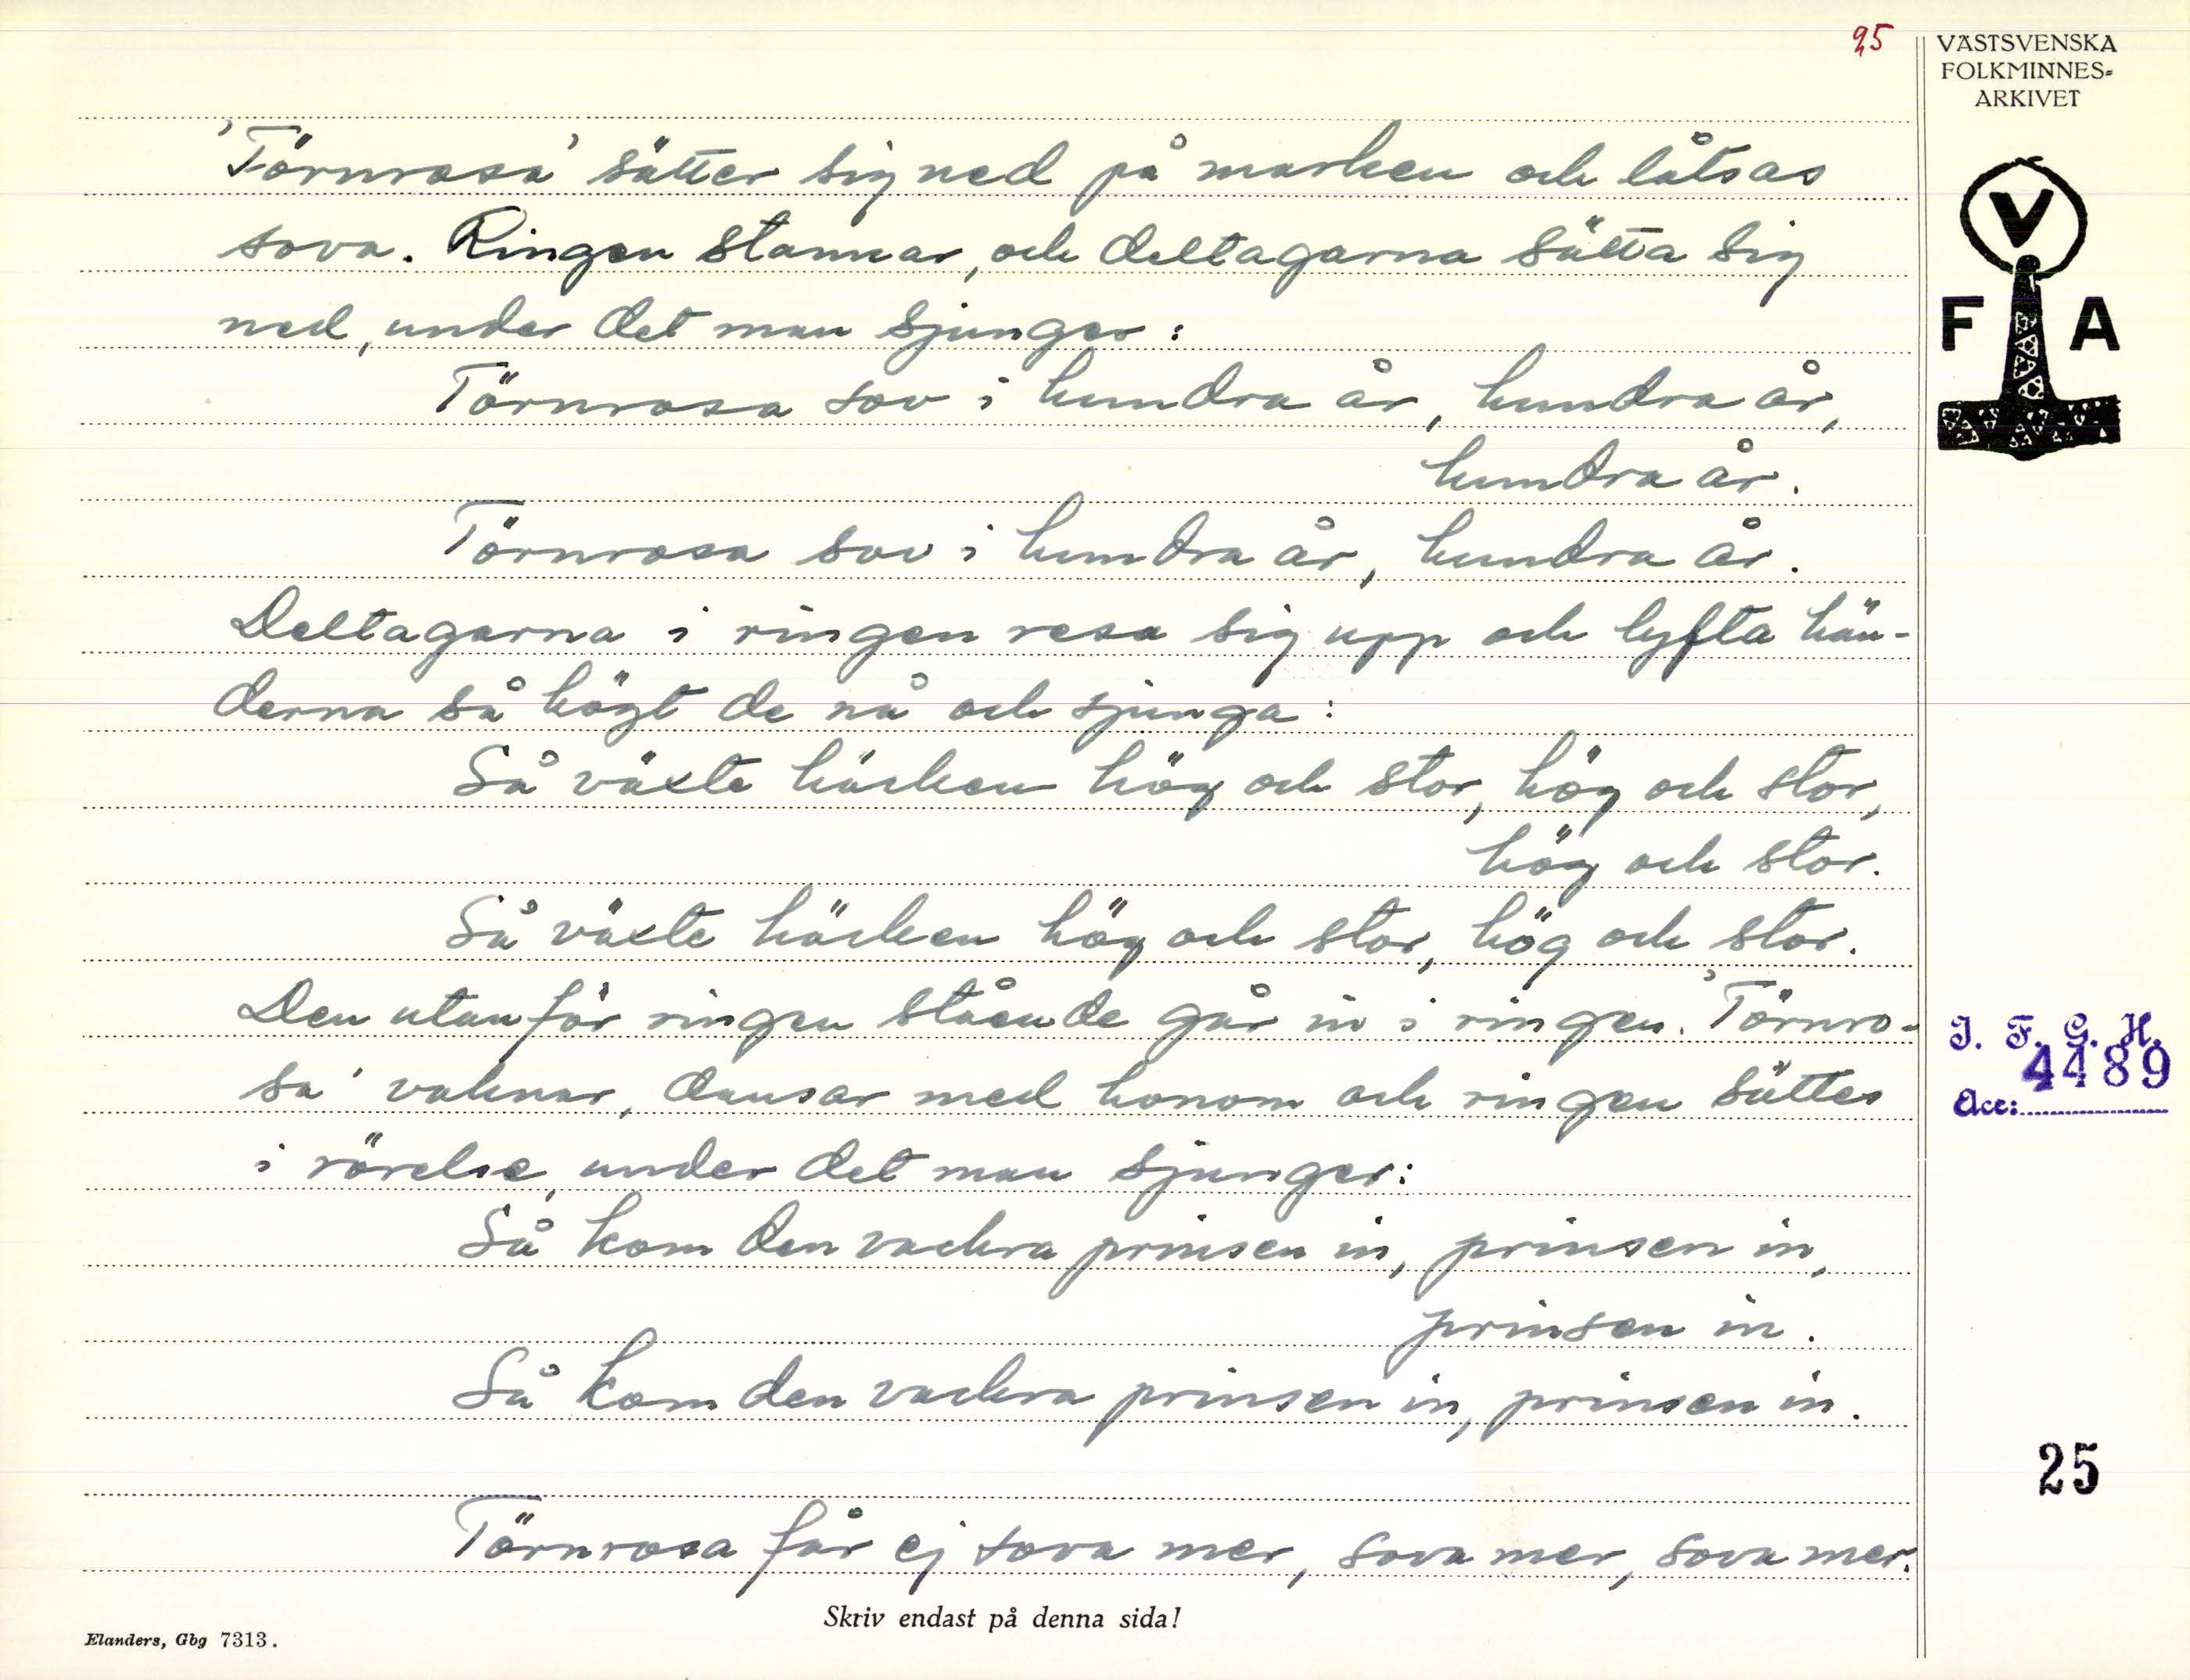 25
VÄSTSVENSKA
FOLKMINNES-
ARKIVET
V
F A
'Törnrosa' sätter sig ned på marken och låtsas
sova. Ringen stannar, och deltagarna sätta sig
ned, under det man sjunger:
Törnrosa sov i hundra år, hundra år,
hundra år.
Törnrosa sov i hundra år, hundra år.
Deltagarna i ringen resa sig upp och lyfta hän-
derna så högt de nå och sjunga:
Så växte häcken hög och stor, hög och stor,
hög och stor.
Så växte häcken hög och stor, hög och stor.
Den utanför ringen stående går in i ringen. 'Törnro-
sa' vaknar, dansar med honom och ringen sättes
i rörelse, under det man sjunger:
Så kom den vackra prinsen in, prinsen in,
prinsen in.
Så kom den vackra prinsen in, prinsen in.
Törnrosa får ej sova mer, sova mer, sova mer.
I. F. G. H.
4489
Acc:
25
Skriv endast på denna sida!
Elanders, Gbg 7313.